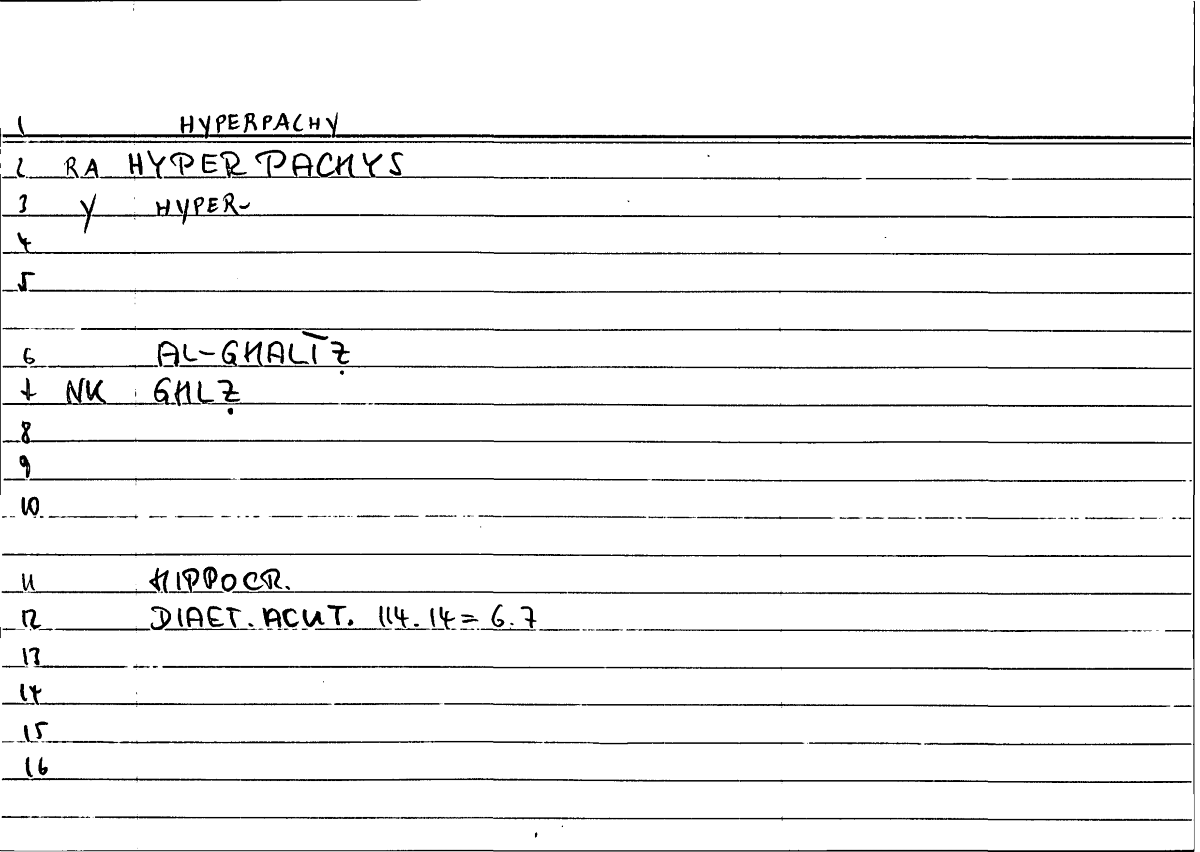 1 HYPERPACHY
2 RA HYPERPACHYS
3 Y HYPER-
4
5
6 AL-GHALĪẒ
7 NK GHLẒ
8
9
10
11 HIPPOCR.
12 DIAET. ACUT. 114.14 = 6.7
13
14
15
16